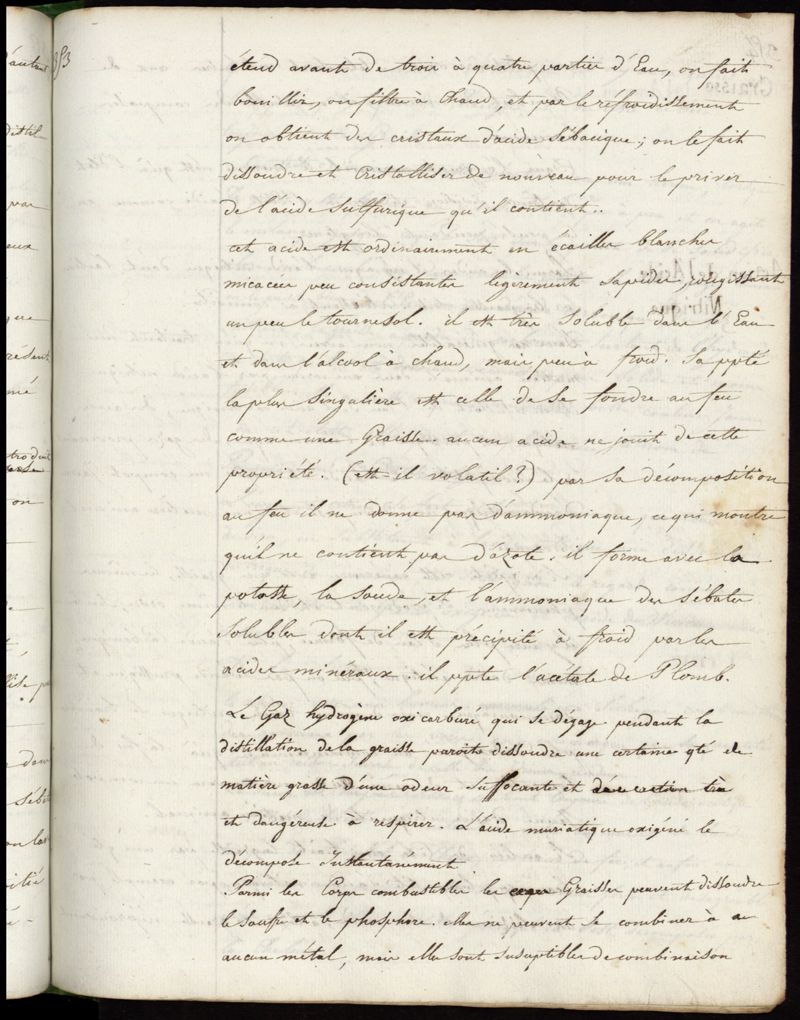 353
étend avante de trois à quatre parties d'Eau, on fait
bouillir, on filtre à Chaud, et par le réfroidissement
on obtient des cristaux d'acide sébacique; on le fait
dissoudre et Cristalliser de nouveau pour le priver
de l'acide sulfurique qu'il contient..
cet acide est ordinairement en écailles blanches
micacées peu consistantes légèrement sapides, rougissant
un peu le tournesol. il est très soluble dans l'Eau
et dans l'alcool à chaud, mais peu à froid. Sa ppté
la plus singulière est celle de se fondre au feu
comme une Graisse. aucun acide ne jouit de cette
propriété. (est-il volatil?) par sa décomposition
au feu il ne donne pas d'ammoniaque, ce qui montre
qu'il ne contient pas d'azote. il forme avec la
potasse, la soude, et l'ammoniaque des sébates
solubles dont il est précipité à froid par les
acides minéraux. il ppte l'acétate de Plomb.
Le Gaz hydrogène oxicarburé qui se dégage pendant la
distillation de la graisse paroît dissoudre une certaine qté de
matière grasse d'une odeur suffocante et
et dangéreuse à respirer. L'acide muriatique oxigéné le
décompose Instantanément
Parmi les Corps combustibles les Graisses peuvent dissoudre
le soufre et le phosphore. elles ne peuvent se combiner à
aucun métal, mais elles sont susceptibles de combinaison